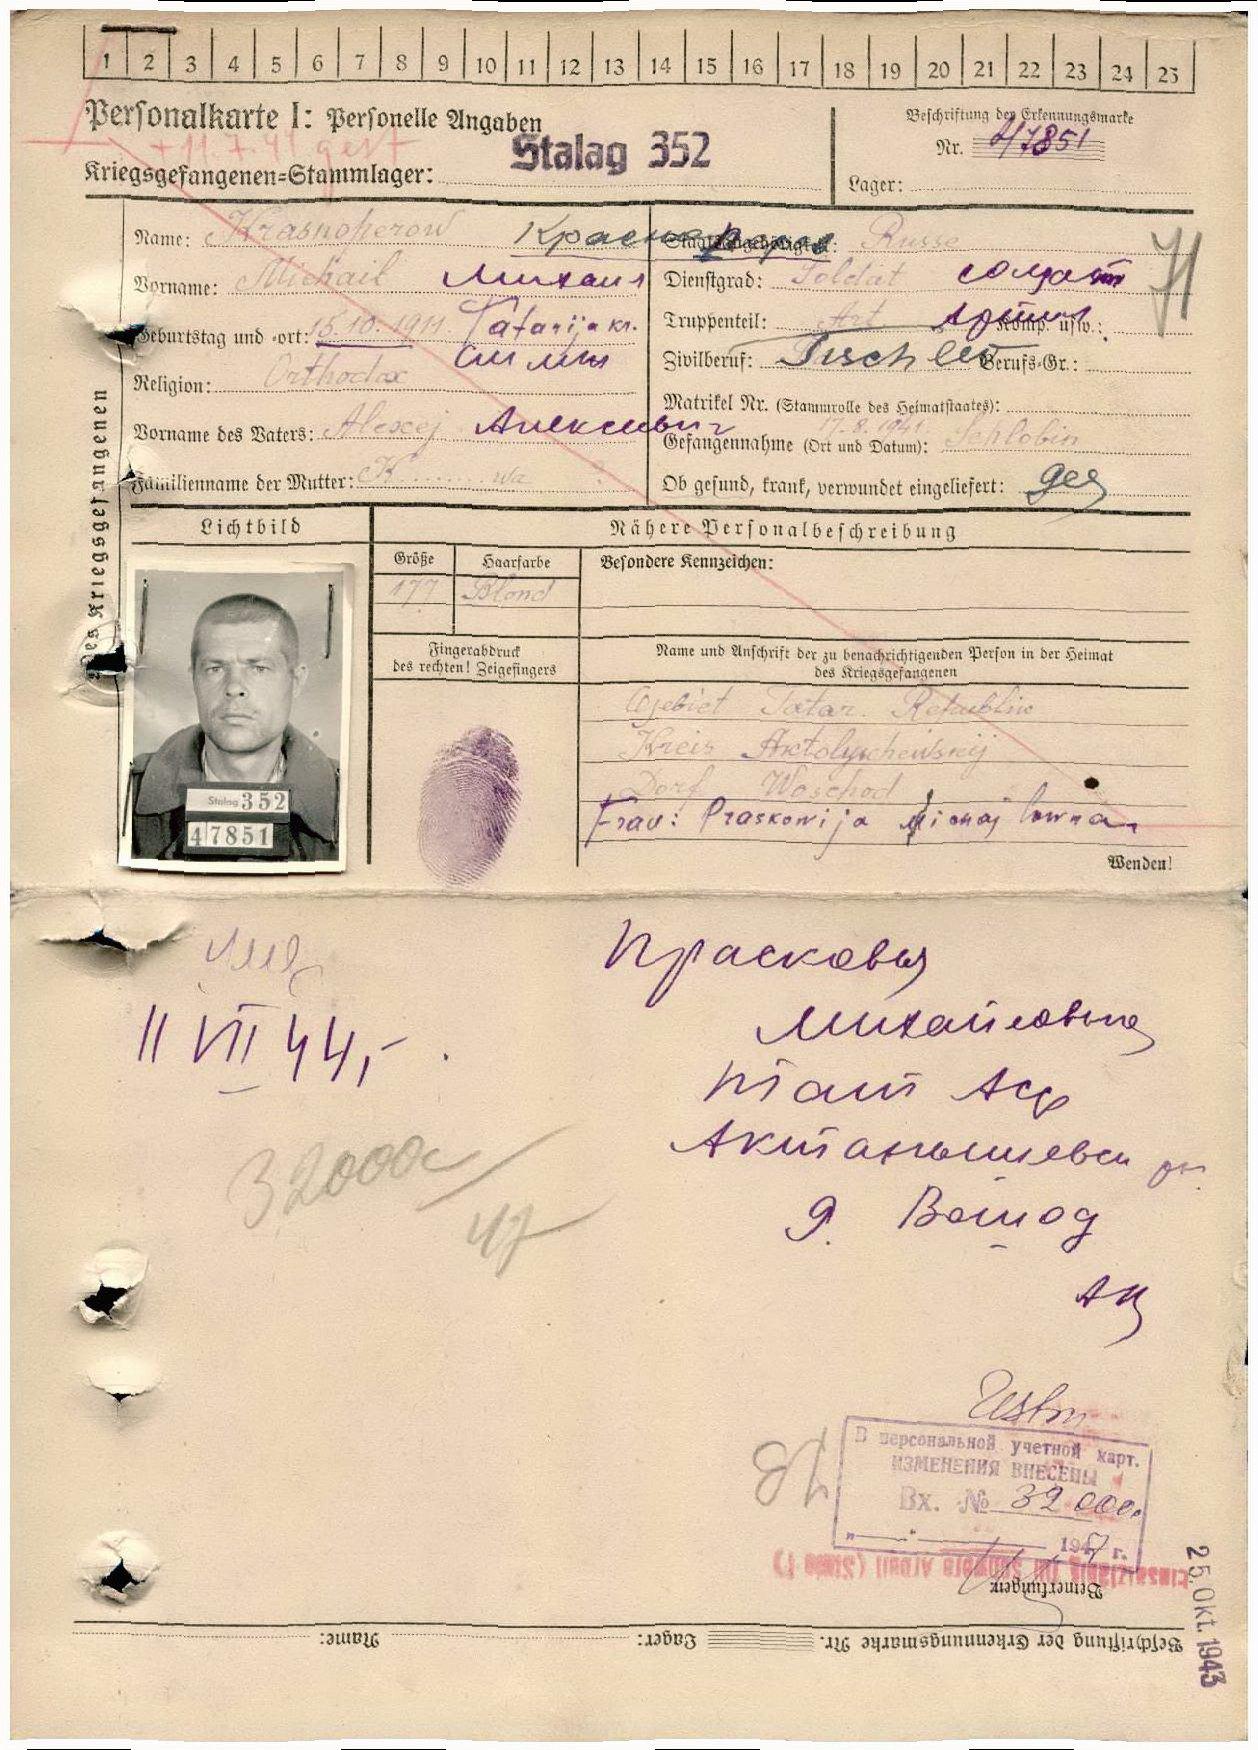 1 2 3 4 5 6 7 8 9 10 11 12 13 14 15 16 17 18 19 20 21 22 23 24 25
Personalkarte I: Personelle Angaben
Beschriftung der Erkennungsmarke
Nr. 47851
+ 11.7.44 gest
Stalag 352
Kriegsgefangenen=Stammlager:
Lager:
Name: Krasnoperow
Vorname: Michail Михаил
Geburtstag und -ort: 15.10.1911. Tatarija kr.
Religion: Orthodox
Vorname des Vaters: Alexej Алексеевич
Familienname der Mutter: K........wa ?
Staatsangehörigkeit: Russe
Dienstgrad: Soldat солдат
Truppenteil: Art Komp. usw.:
Zivilberuf: Tischler Berufs-Gr.:
Matrikel Nr. (Stammrolle des Heimatstaates):
17.8.1941
Gefangennahme (Ort und Datum): Schlobin
Ob gesund, krank, verwundet eingeliefert: ges
71
des Kriegsgefangenen
Lichtbild
Nähere Personalbeschreibung
Größe
Haarfarbe
Besondere Kennzeichen:
177
Blond
Fingerabdruck
des rechten! Zeigefingers
Name und Anschrift der zu benachrichtigenden Person in der Heimat
des Kriegsgefangenen
Gebiet Tatar. Republik
Kreis
Dorf Woschod
Frau: Praskowija
Wenden!
Stalag 352
47851
Прасковья
Михайловна
тат Аср
Актанышевск
д.
11 VII 44,-.
32000с
47
В персональной учетной карт.
ИЗМЕНЕНИЯ ВНЕСЕНЫ
Вх. № 32 000с
194 г.
Bemerkungen:
25. Okt. 1943
Beschriftung der Erkennungsmarke Nr. Lager: Name: